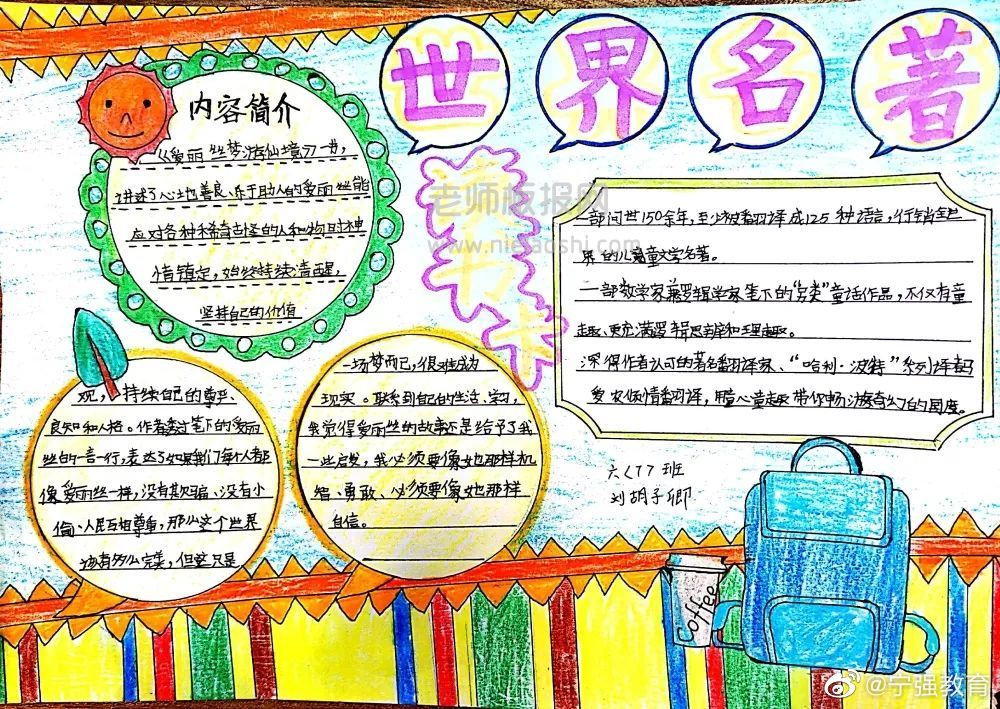 世界名著
荐书卡
内容简介
《爱丽丝梦游仙境》一书，
讲述了心地善良、乐于助人的爱丽丝能
应对各种稀奇古怪的人和物时神
情镇定，始终持续清醒，
坚持自己的价值
观，持续自己的尊严、
良知和人格。作者透过笔下的爱丽
丝的一言一行，表达了如果我们每个人都
像爱丽丝一样，没有欺骗、没有小
偷、人民互相尊重，那么这个世界
该有多么完美，但这只是
一场梦而已，很难成为
现实。联系到自己的生活、学习，
我觉得爱丽丝的故事还是给予了我
一些启发，我必须要像她那样机
智、勇敢、必须要像她那样
自信。
一部问世150余年，至少被翻译成125种语言，行销全世
界的儿童文学名著。
一部数学家兼逻辑学家笔下的“另类”童话作品，不仅有童
趣、更充满逻辑思辨和理趣。
深得作者认可的著名翻译家、“哈利·波特”系列译者马
爱农倾情翻译，用童心童趣带你畅游奇幻的国度。
六（7）班
刘胡子卿
Coffee
老师板报网
www.nielaoshi.com
@宁强教育